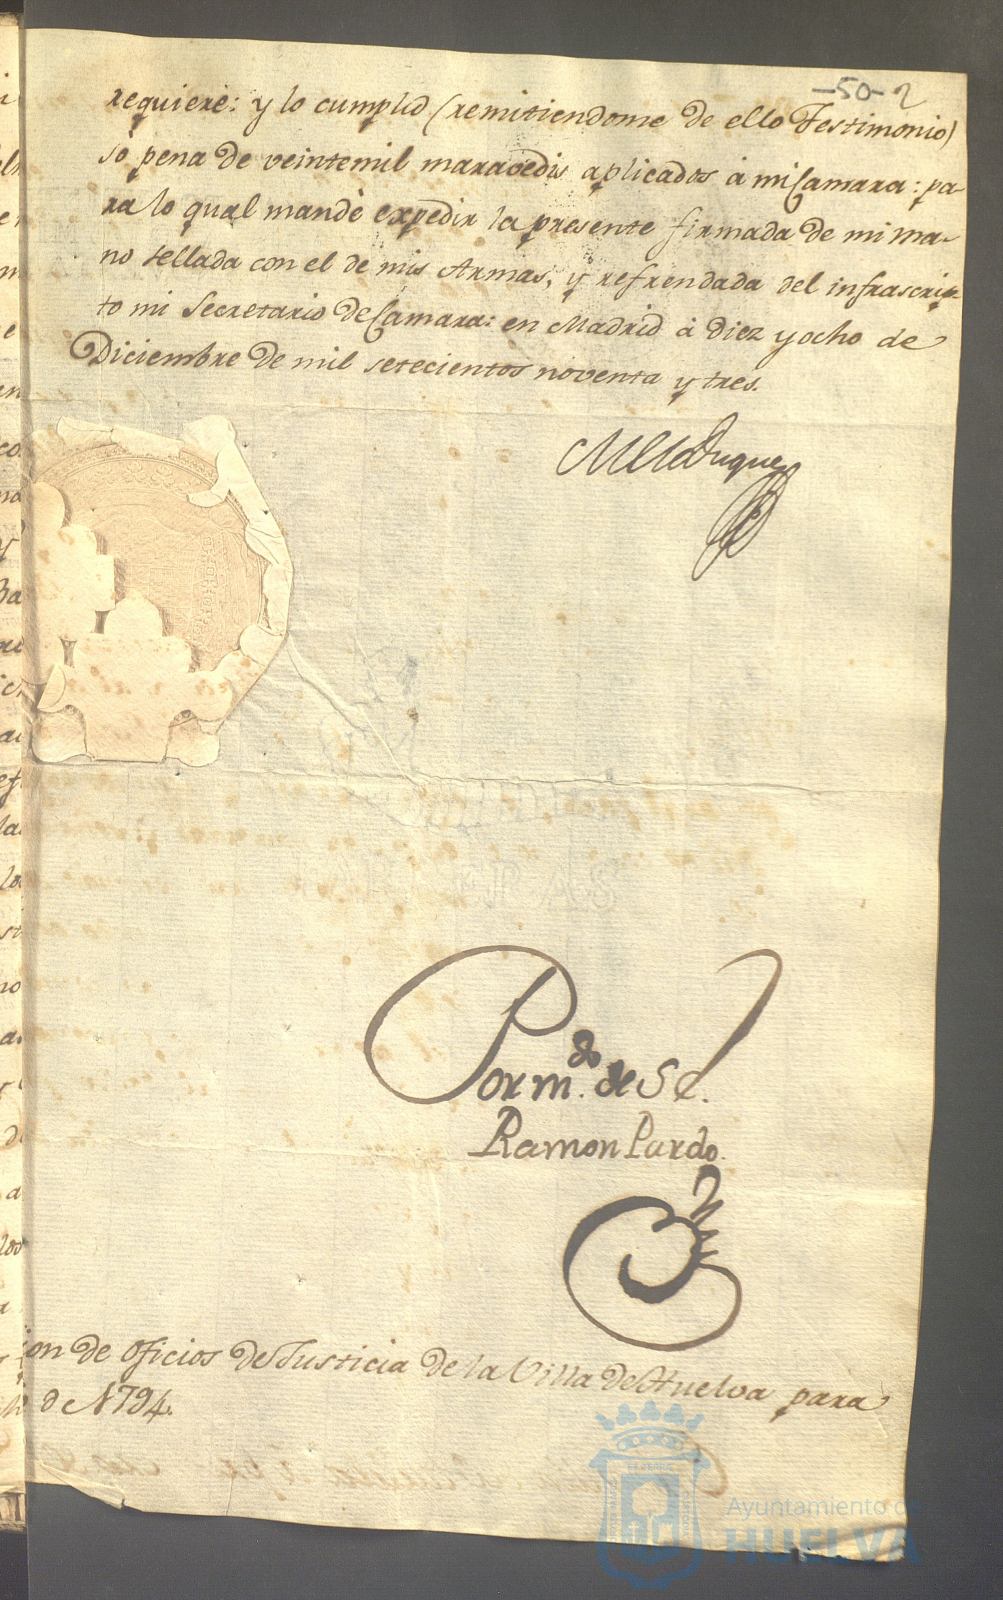 -50- 2
requiere: y lo cumplid (remitiendome de ello Testimonio)
só pena de veintemil maravedis aplicados á mi Camara: pa-
ra lo qual mandè expedir la presente firmada de mi ma-
no sellada con el de mis Armas, y refrendada del infrascrip-
to mi Secretario de Camara: en Madrid á diez y ocho de
Diciembre de mil setecientos noventa y tres.
Duque
Por m.do de S. E.
Ramon Pardo.
on de Oficios de Justicia de la Villa de Huelva para
de 1794.
Ayuntamiento de
HUELVA